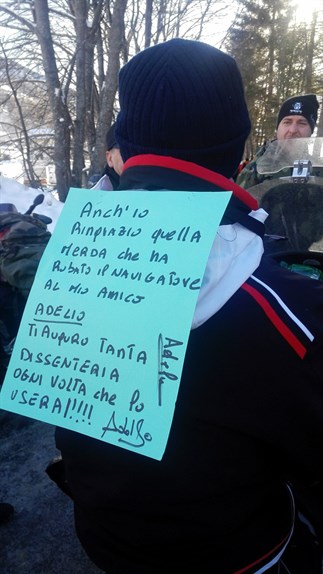 Anch'io
Ringrazio quella
MERDA che ha
Rubato il NAVIGATORE
AL MIO AMICO
ADELIO
TI AUGURO TANTA
DISSENTERIA
OGNI VOLTA che lo
USERAI!!!!